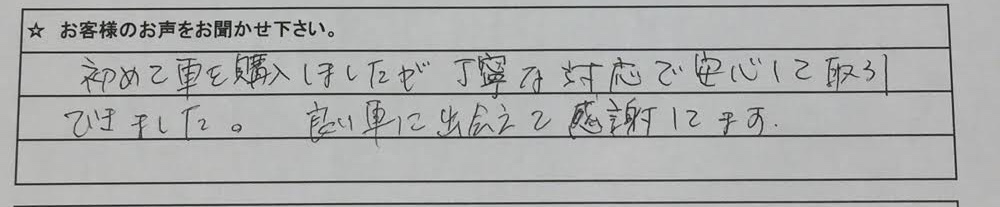 ☆ お客様のお声をお聞かせ下さい。
初めて車を購入しましたが丁寧な対応で安心して取引
できました。 良い車に出会えて感謝してます.